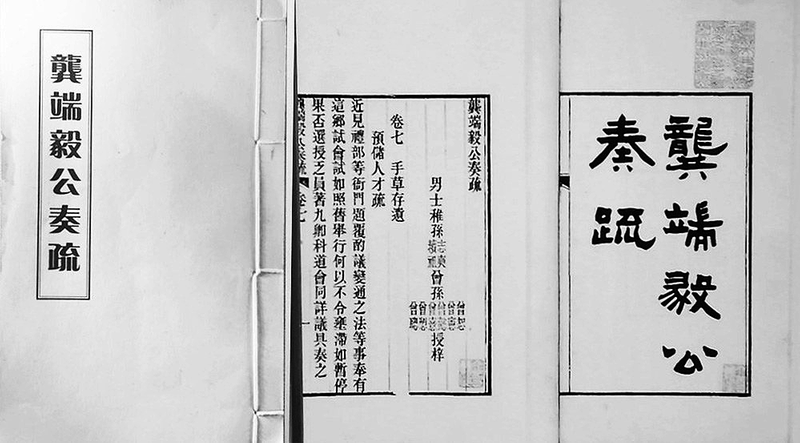 龔端毅公
奏疏
龔端毅公奏疏
男士稚孫曾孫授梓
卷七 手草存遺
預儲人才疏
近見禮部等衙門題覆酌議變通之法等事奉有
這鄉試會試如照舊舉行何以不令壅滯如暫停
果否選授乏員著九卿科道會同詳議具奏之
龔端毅公奏疏 卷七 一
龔端毅公奏疏